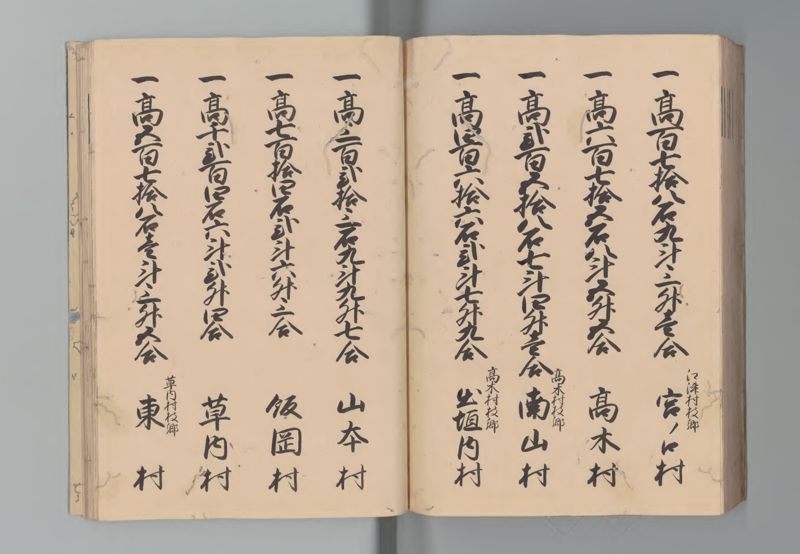 一高百七拾八石九斗三升壱合
江津村枝郷
宮ノ口村
一高六百七拾五石八斗五升五合
高木村
一高弐百五拾八石七斗四升壱合
高木村枝郷
南山村
一高四百六拾六石弐斗七升九合
高木村枝郷
出垣内村
一高三百弐拾三石九斗九升七合
山本村
一高七百拾四石弐斗六升三合
飯岡村
一高千弐百四石六斗弐升四合
草内村
一高五百七拾八石壱斗三升五合
草内村枝郷
東村